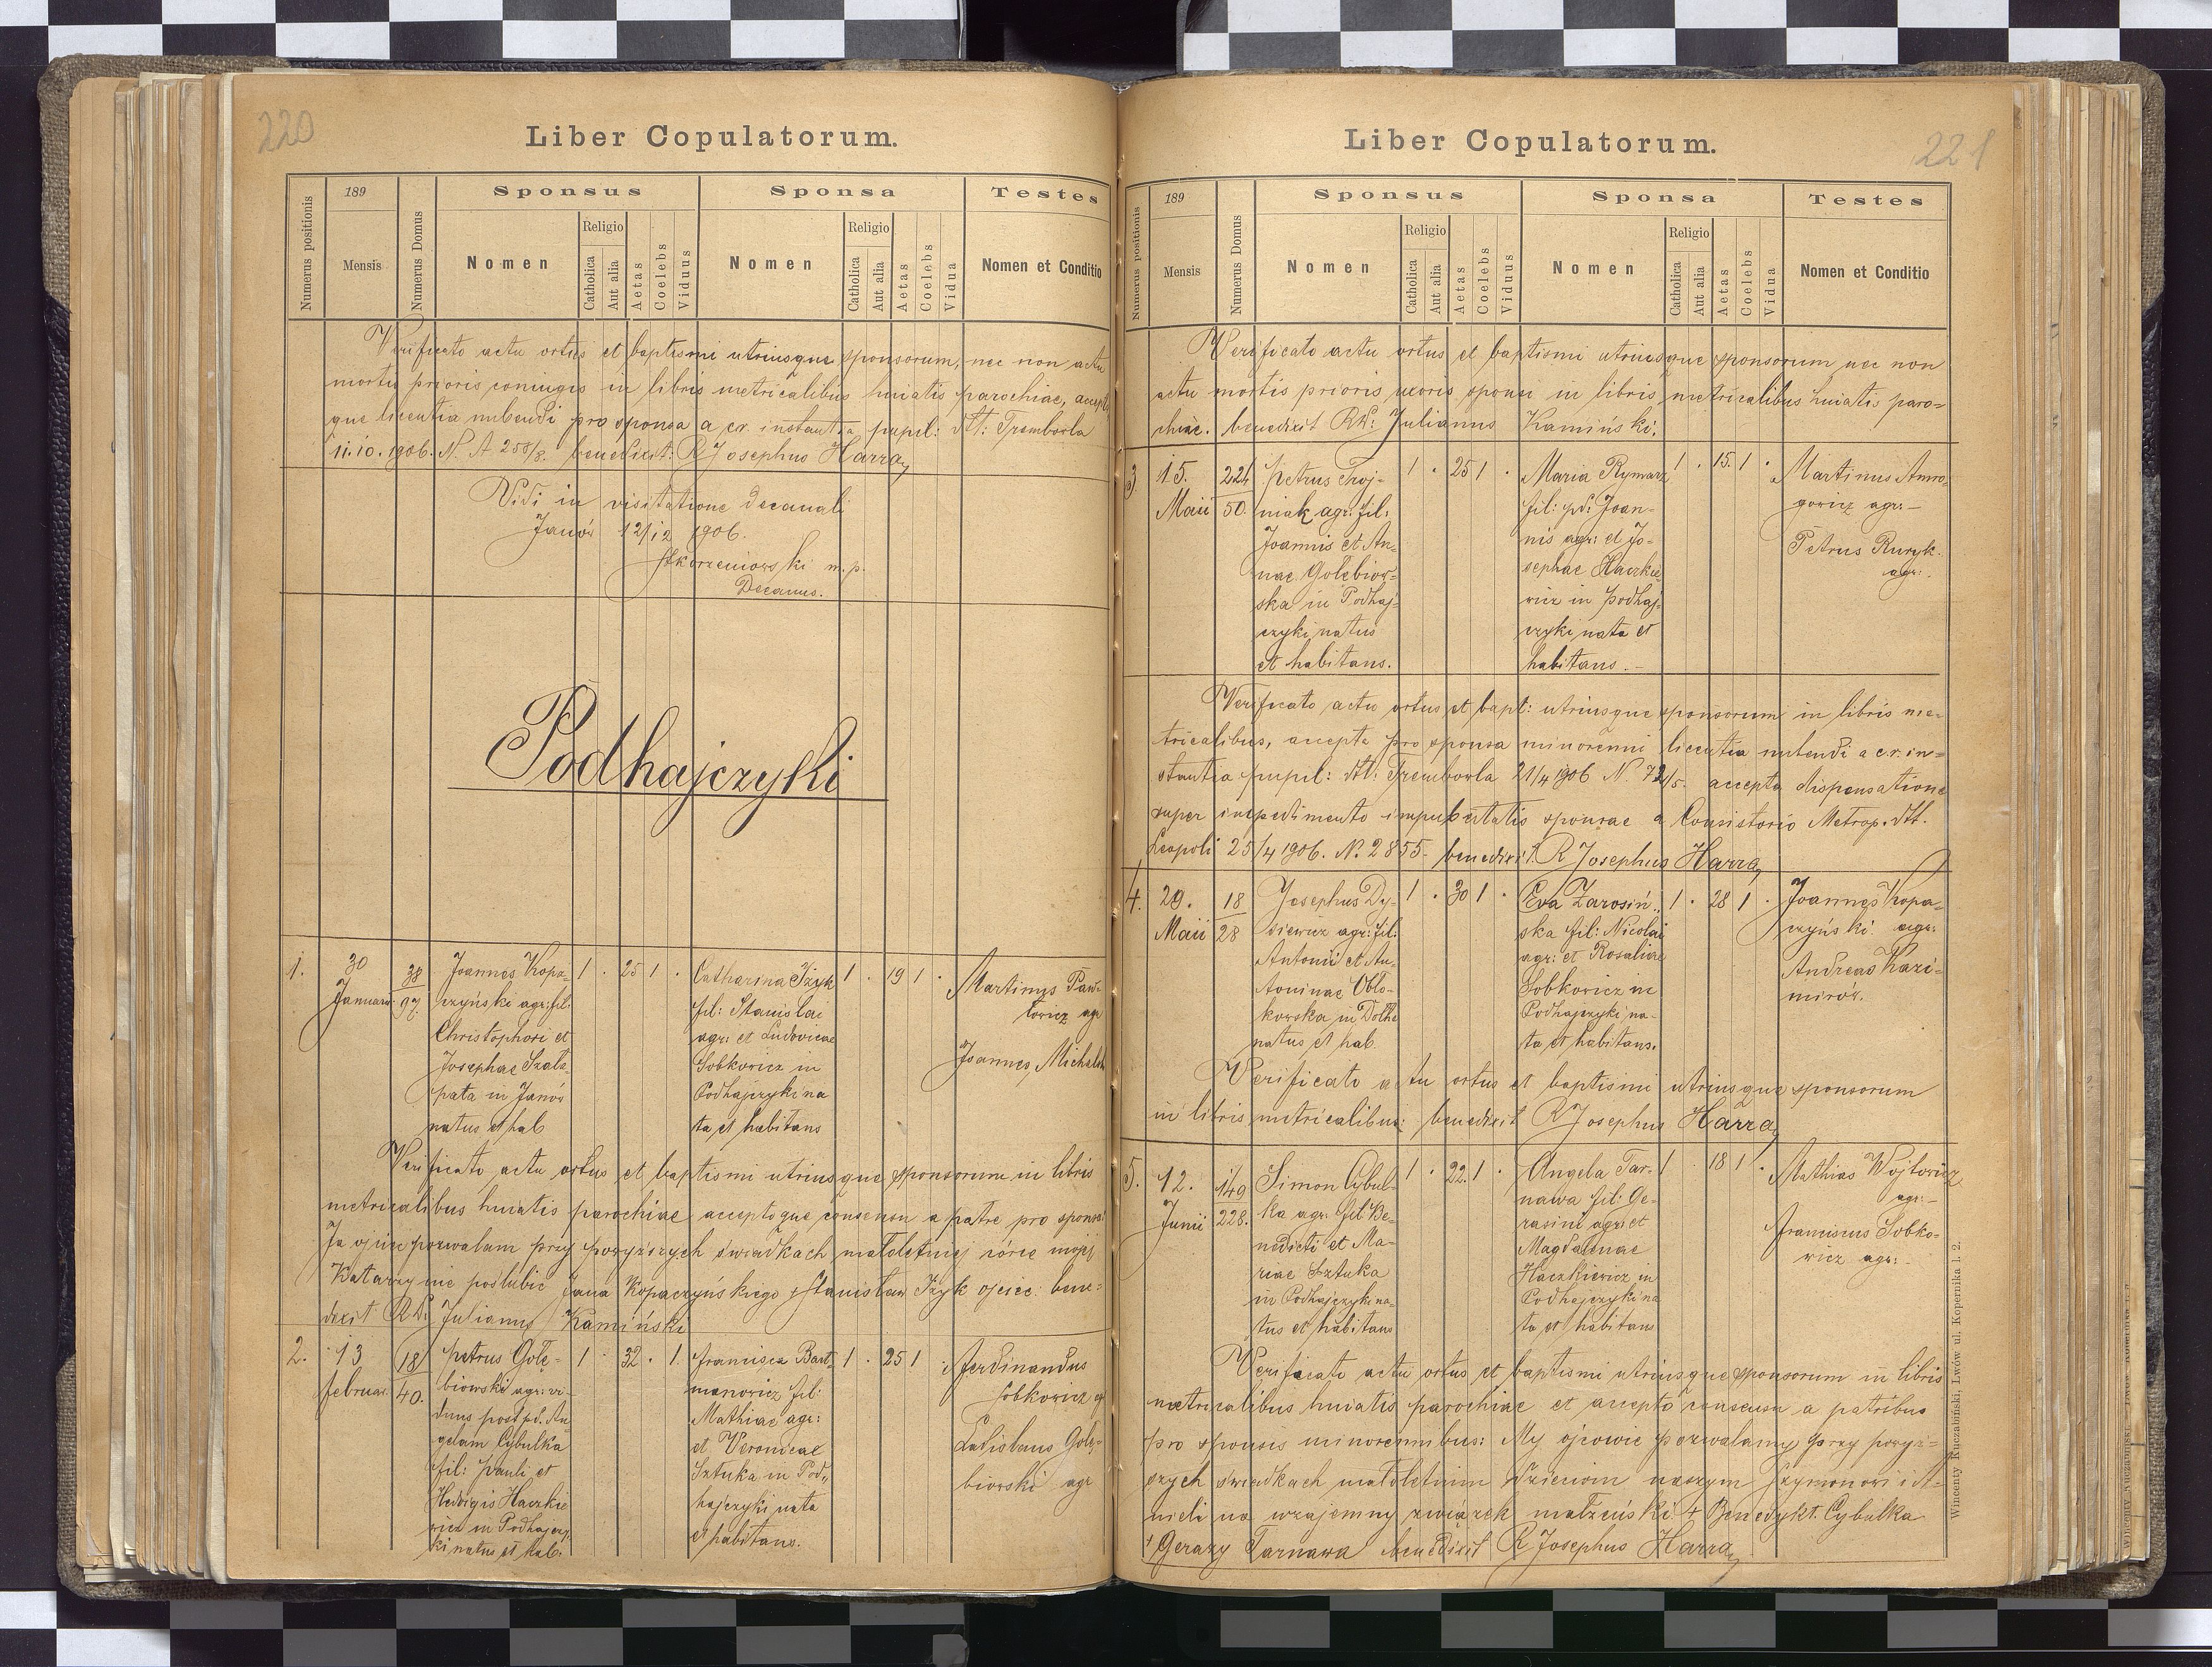 220
Liber Copulatorum.
Numerus positionis
189
Mensis
Numerus Domus
Sponsus
Nomen
Religio
Catholica
Aut alia
Aetas
Coelebs
Viduus
Sponsa
Nomen
Religio
Catholica
Aut alia
Aetas
Coelebs
Vidua
Testes
Nomen et Conditio
Verificato actu ortus et baptismi utriusque sponsorum, nec non actu
mortis prioris coniugis in libris metricalibus huiatis parochiae,
que licentia nubendi pro sponsa a c.r. instantia pupil: dt: Trembowla
11.10.1906. N. A 258/8. benedixit: R Josephus Harra
Vidi in visitatione decanali
Janów 12/12 1906.
Skorzeniowski m.p.
Decanus.
Podhajczyki
1.
30
Januarii
38
97.
Joannes Kopa-
czyński agr: fil:
Christophori et
Josephae Szała-
pata in Janów
natus et hab
1 . 25 1 .
Catharina Iżyk
fil: Stanislai
agr: et Ludovicae
Sobkowicz in
Podhajczyki na
ta et habitans
1 . 19 1 .
Martinus Paw-
łowicz agr
Joannes
Verificato actu ortus et baptismi utriusque sponsorum in libris
metricalibus huiatis parochiae acceptoque consensu a patre pro sponsa:
Ja ojciec pozwalam przy powyższych świadkach małoletniej córce mojej
Katarzynie poślubić Jana Kopaczyńskiego + Stanisław Iżyk ojciec: bene-
dixit RD: Julianus Kamiński
2.
13
februar.
18
40.
Petrus Golę-
biowski agr: vi-
duus post pd. An-
gelam Cybulka
fil: Pauli et
Hedvigis Haczkie
wicz in Podhajczy
ki natus et hab:
1 . 32 . 1.
Francisca Bart-
manowicz fil:
Mathiae agr:
et Veronicae
Sztuka in Pod,,
hajczyki nata
et habitans.
1 . 25 1
Ferdinandus
Sobkowicz
Ladislaus Golę-
biowski agr
221
Liber Copulatorum.
Numerus positionis
189
Mensis
Numerus Domus
Sponsus
Nomen
Religio
Catholica
Aut alia
Aetas
Coelebs
Viduus
Sponsa
Nomen
Religio
Catholica
Aut alia
Aetas
Coelebs
Vidua
Testes
Nomen et Conditio
Verificato actu ortus et baptismi utriusque sponsorum nec non
actu mortis prioris uxoris sponsi in libris metricalibus huiatis paro-
chiae. benedixit RD: Julianus Kamiński.
3
15.
Maii
224
50.
Petrus Troj-
niak agr: fil:
Joannis et An-
nae Golębiow-
ska in Podhaj-
czyki natus
et habitans.
1 . 25 1 .
Maria Rymarz
fil: pd: Joan-
nis agr: et Jo-
sephae Haczkie
wicz in Podhaj-
czyki nata et
habitans.-
1 . 15. 1 .
Martinus
gowicz agr:-
Petrus Kuryk.
agr:.
Verificato actu ortus et bapt: utriusque sponsorum in libris me-
tricalibus, accepta pro sponsa minorenni licentia nubendi a c.r. in-
stantia pupil: dt: Trembowla 21/4 1906 N. accepta dispensatione
super impedimento impubertatis sponsae a Consistorio Metrop. dt.
Leopoli 25/4 1906. N. 2855. benedixit R Josephus Harra
4.
29.
Maii
18
28
Josephus Dy-
siewicz agr: fil:
Antonii et An-
toninae Obło-
kowska in Dołhe
natus et hab
1 . 30 1 .
Eva Zarosiń,,
ska fil: Nicolai
agr: et Rosaliae
Sobkowicz in
Podhajczyki na-
ta et habitans.
1 . 28 1 .
Joannes Kopa-
czyński agr:
Andreas Kazi-
mirów.
Verificato actu ortus et baptismi utriusque sponsorum
in libris metricalibus: benedixit R Josephus Harra
5.
12.
Junii
149
228.
Simon Cybul-
ka agr. fil Be-
nedicti et Ma-
riae Sztuka
in Podhajczyki na-
tus et habitans
1 . 22. 1 .
Angela Tar-
nawa fil: Ge-
rasimi agr: et
Magdalenae
Haczkiewicz in
Podhajczyki na
ta et habitans
1 . 18 1 .
Mathias Wojtowicz
agr:-
Franciscus Sobko-
wicz agr:-
Verificato actu ortus et baptismi utriusque sponsorum in libris
metricalibus huiatis parochiae et accepto consensu a patribus
pro sponsis minorennibus: My ojcowie pozwalamy przy powyż-
szych świadkach małoletnim dzieciom naszym Szymonowi i A-
nieli na wzajemny związek małżeński + Benedykt Cybulka
+ Gerazy Tarnawa benedixit R Josephus Harra
Wincenty Kuczabiński, Lwów ul. Kopernika l. 2.